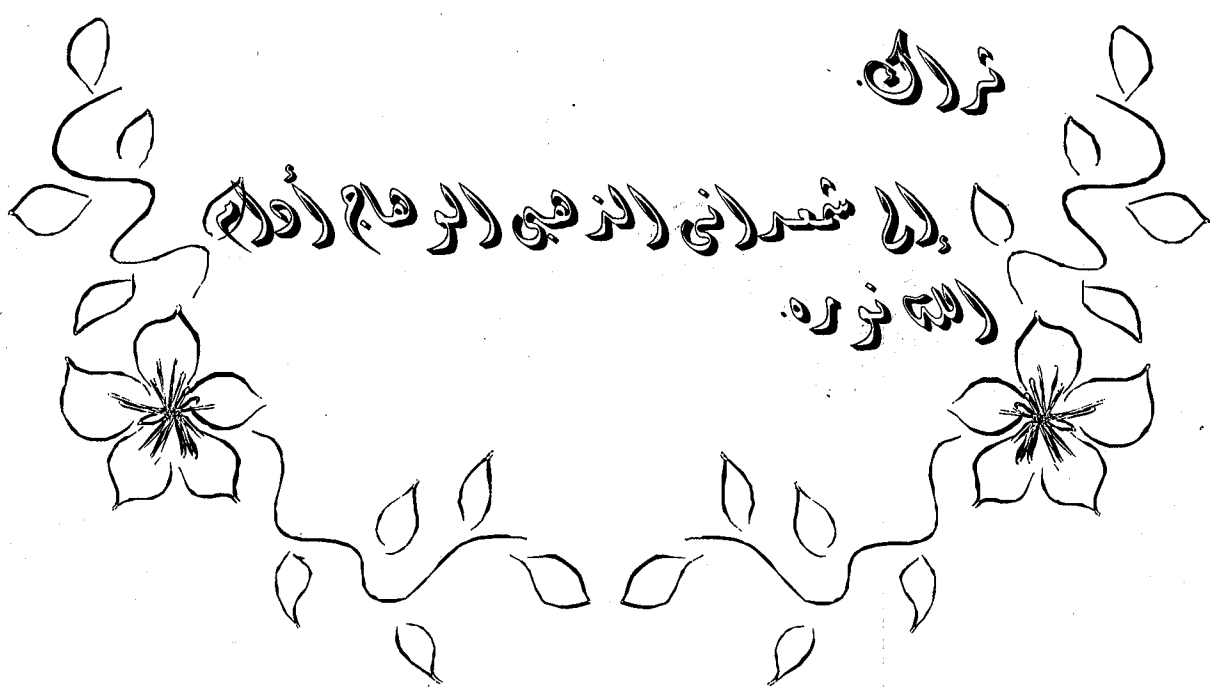 ثراك.
إلى شمعدانى الذهبى الوهاج أدام
الله نوره.